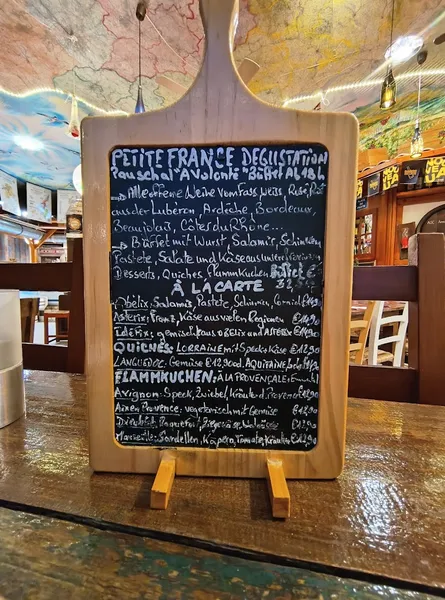 PETITE FRANCE DEGUSTATION
Pauschal "A Volonté" Büffet Ab 18 h
- Alle offene Weine vom Fass Weiss, Rosé, Rot
aus der Lubéron, Ardèche, Bordeaux,
Beaujolais, Côtes du Rhône...
- Büffet mit Wurst, Salamis, Schinken
Pastete, Salate und Käse aus unsere
Desserts, Quiches, Flammkuchen Büffet €
À LA CARTE
Obélix: Salamis, Pastete, Schinken, Cornich
Astérix: Franz. Käse aus vielen Regionen
Idéfix: gemischt aus OBÉLIX und ASTÉRIX
QUICHES: LORRAINE mit Speck, Käse €12,90
LANGUEDOC: Gemüse €12,90 od. AQUITAINE
FLAMMKUCHEN: À LA PROVENÇALE
Avignon: Speck, Zwiebel, Kräuter d. Provence
Aix en Provence: vegetarisch mit Gemüse €12,90
Roquefort, Ziegenkäse, Walnüsse €12,90
Marseille: Sardellen, Kapern, Tomaten, Kräuter €12,90